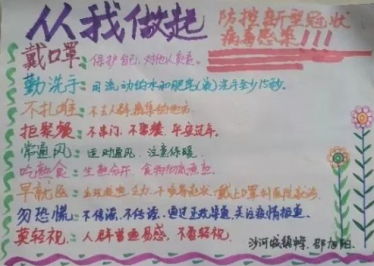 从我做起
防控新型冠状
病毒感染!!!
戴口罩:保护自己,对他人负责。
勤洗手:用流动的水和肥皂(液)洗手至少15秒。
不扎堆:不去人群密集的地方。
拒聚餐:不串门、不聚餐、平安过年。
常通风:运动通风、注意保暖。
吃熟食:生熟分开、食物彻底煮熟。
早就医:出现发热、乏力、干咳等症状,戴上口罩到医院就诊。
勿恐慌:不传谣、不信谣、通过正规渠道关注疫情报道。
莫轻视:人群普遍易感、不要轻视。
沙河城镇 邵